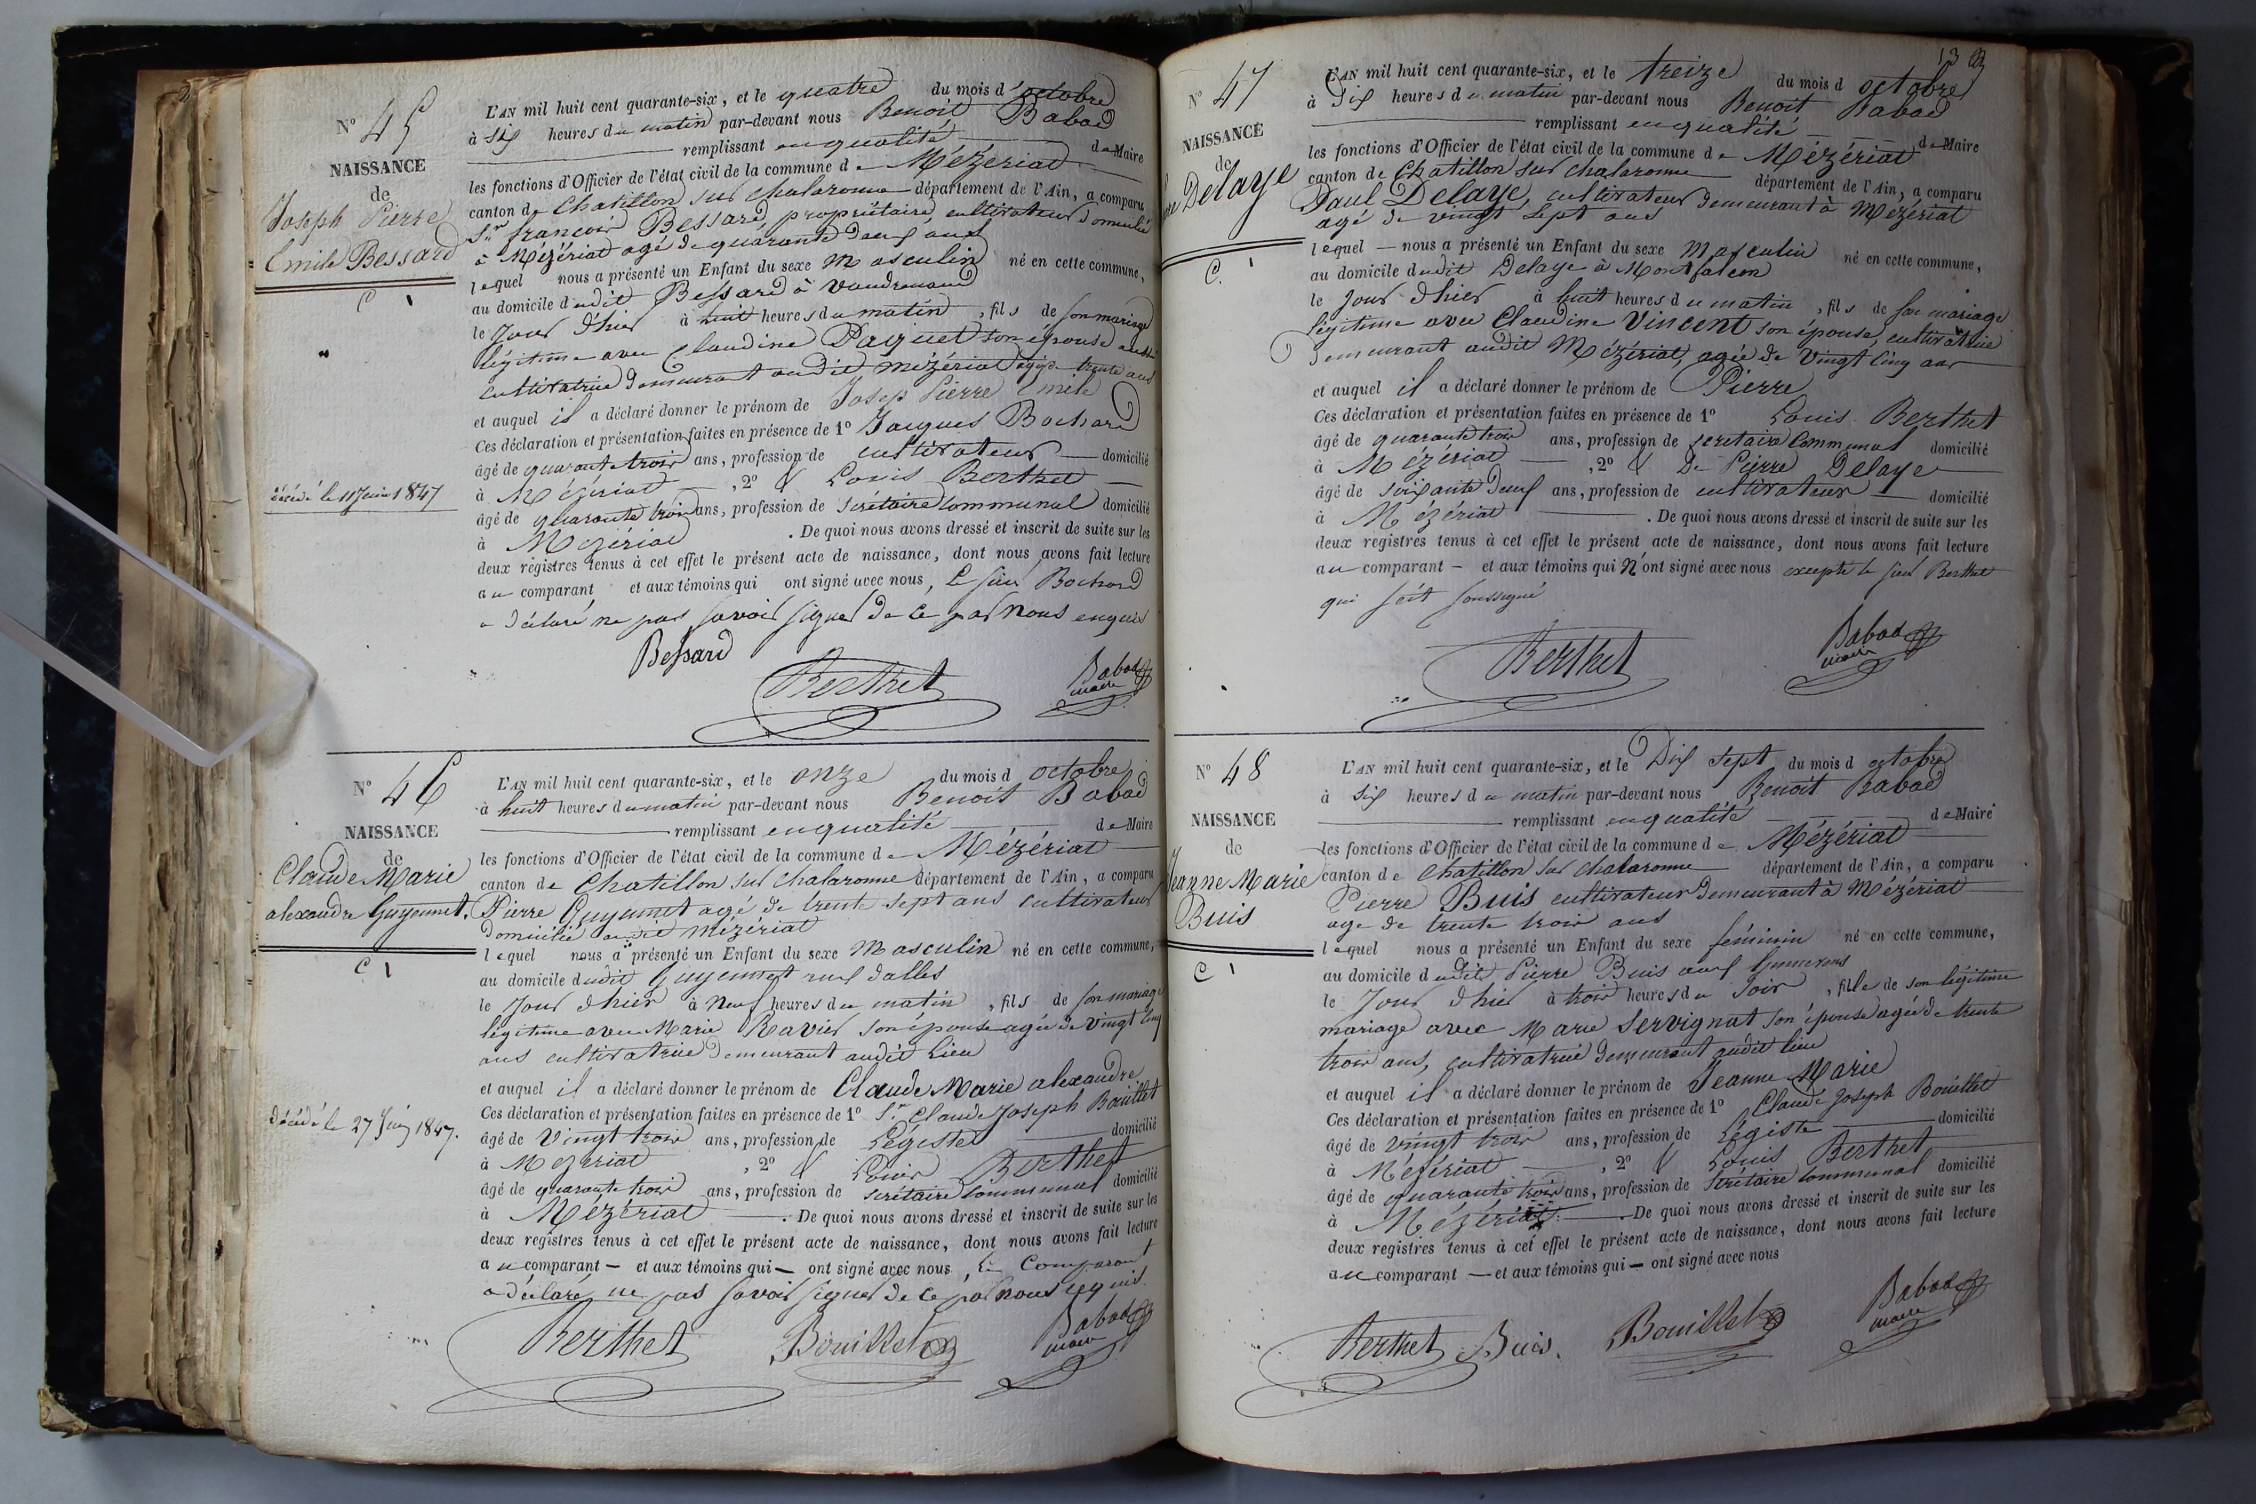 N° 45
NAISSANCE
de
Joseph Pierre
Emile Bessard
C 1
décédé le 11 Juin 1847
L'AN mil huit cent quarante-six, et le quatre du mois d'octobre
à dix heures du matin par-devant nous Benoit Babad
remplissant en qualité de Maire
les fonctions d'Officier de l'état civil de la commune de Mézériat
canton de Chatillon sur Chalaronne département de l'Ain, a comparu
Sr françois Bessard, propriétaire, cultivateur domicilié
à Mézériat agé de quarante deux ans
lequel nous a présenté un Enfant du sexe Masculin né en cette commune,
au domicile dudit Bessard à
le Jour d'hier à huit heures du matin, fils de son mariage
légitime avec Claudine Paquet son épouse aussi
cultivatrice demeurant audit Mézériat agée de trente ans
et auquel il a déclaré donner le prénom de Josep Pierre Emile
Ces déclaration et présentation faites en présence de 1° Jacques Bochard
âgé de quarante trois ans, profession de cultivateur domicilié
à Mézériat, 2° & Louis Berthet
âgé de quarante trois ans, profession de Secrétaire Communal domicilié
à Mézériat. De quoi nous avons dressé et inscrit de suite sur les
deux registres tenus à cet effet le présent acte de naissance, dont nous avons fait lecture
au comparant et aux témoins qui ont signé avec nous, le sieur Bochard
a déclaré ne pas savoir signer de ce par nous enquis
Bessard
Berthet
Babad
maire
N° 46
NAISSANCE
de
Claude Marie
alexandre Guyennet.
C 1
Décédé le 27 Juin 1847.
L'AN mil huit cent quarante-six, et le onze du mois d octobre
à huit heures du matin par-devant nous Benoit Babad
remplissant en qualité de Maire
les fonctions d'Officier de l'état civil de la commune de Mézériat
canton de Chatillon sur Chalaronne département de l'Ain, a comparu
Pierre Guyennet agé de trente sept ans cultivateur
domicilié audit Mézériat
lequel nous a présenté un Enfant du sexe Masculin né en cette commune,
au domicile dudit Guyennet
le Jour d'hier à Neuf heures du matin, fils de son mariage
légitime avec Marie Ravier son épouse agée de Vingt Cinq
ans cultivatrice demeurant audit Lieu
et auquel il a déclaré donner le prénom de Claude Marie alexandre
Ces déclaration et présentation faites en présence de 1° Sr Claude Joseph Bouillet
âgé de Vingt trois ans, profession de Légiste domicilié
à Mézériat, 2° & Louis Berthet
âgé de quarante trois ans, profession de Secrétaire Communal domicilié
à Mézériat. De quoi nous avons dressé et inscrit de suite sur les
deux registres tenus à cet effet le présent acte de naissance, dont nous avons fait lecture
au comparant et aux témoins qui ont signé avec nous, le Comparant
a déclaré ne pas savoir signer de ce par nous requis.
Berthet
Bouillet
Babad
maire
13
N° 47
NAISSANCE
de
Delaye
C. 1
L'AN mil huit cent quarante-six, et le treize du mois d octobre
à dix heures du matin par-devant nous Benoit Babad
remplissant en qualité de Maire
les fonctions d'Officier de l'état civil de la commune de Mézériat
canton de Chatillon sur Chalaronne département de l'Ain, a comparu
Paul Delaye, cultivateur demeurant à Mézériat
agé de vingt sept ans
lequel nous a présenté un Enfant du sexe Masculin né en cette commune,
au domicile dudit Delaye à Montfalcon
le Jour d'hier à huit heures du matin, fils de son mariage
légitime avec Claudine Vincent son épouse, cultivatrice
demeurant audit Mézériat, agée de Vingt Cinq ans
et auquel il a déclaré donner le prénom de Pierre
Ces déclaration et présentation faites en présence de 1° Louis Berthet
âgé de quarante trois ans, profession de Secretaire Communal domicilié
à Mézériat, 2° & De Pierre Delaye
âgé de soixante deux ans, profession de cultivateur domicilié
à Mézériat. De quoi nous avons dressé et inscrit de suite sur les
deux registres tenus à cet effet le présent acte de naissance, dont nous avons fait lecture
au comparant et aux témoins qui N'ont signé avec nous excepté le sieur Berthet
qui soussigné
Berthet
Babad
maire
N° 48
NAISSANCE
de
Jeanne Marie
Buis
C 1
L'AN mil huit cent quarante-six, et le Dix sept du mois d octobre
à dix heures du matin par-devant nous Benoit Babad
remplissant en qualité de Maire
les fonctions d'Officier de l'état civil de la commune de Mézériat
canton de Chatillon sur Chalaronne département de l'Ain, a comparu
Pierre Buis cultivateur demeurant à Mézériat
age de trente trois ans
lequel nous a présenté un Enfant du sexe féminin né en cette commune,
au domicile dudit Pierre Buis aux
le Jour d'hier à trois heures du Soir, fille de son légitime
mariage avec Marie Servignat son épouse agée de trente
trois ans, cultivatrice demeurant audit lieu
et auquel il a déclaré donner le prénom de Jeanne Marie
Ces déclaration et présentation faites en présence de 1° Claude Joseph Bouillet
âgé de vingt trois ans, profession de Légiste domicilié
à Mézériat, 2° & Louis Berthet
âgé de quarante trois ans, profession de Secrétaire Communal domicilié
à Mézériat. De quoi nous avons dressé et inscrit de suite sur les
deux registres tenus à cet effet le présent acte de naissance, dont nous avons fait lecture
au comparant et aux témoins qui ont signé avec nous
Berthet
Buis.
Bouillet
Babad
maire